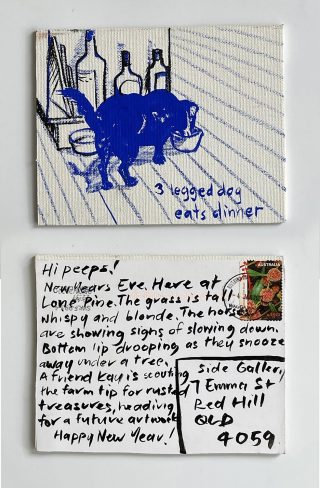 3 legged dog
eats dinner
Hi peeps!
New Years Eve. Here at
Lone Pine. The grass is tall
whispy and blonde. The horses
are showing signs of slowing down.
Bottom lip drooping as they snooze
away under a tree.
A friend Kay is scouting
the farm tip for rusted
treasures, heading
for a future artwork
Happy New Year!
AUSTRALIA
Side Gallery
7 Emma St
Red Hill
QLD
4059